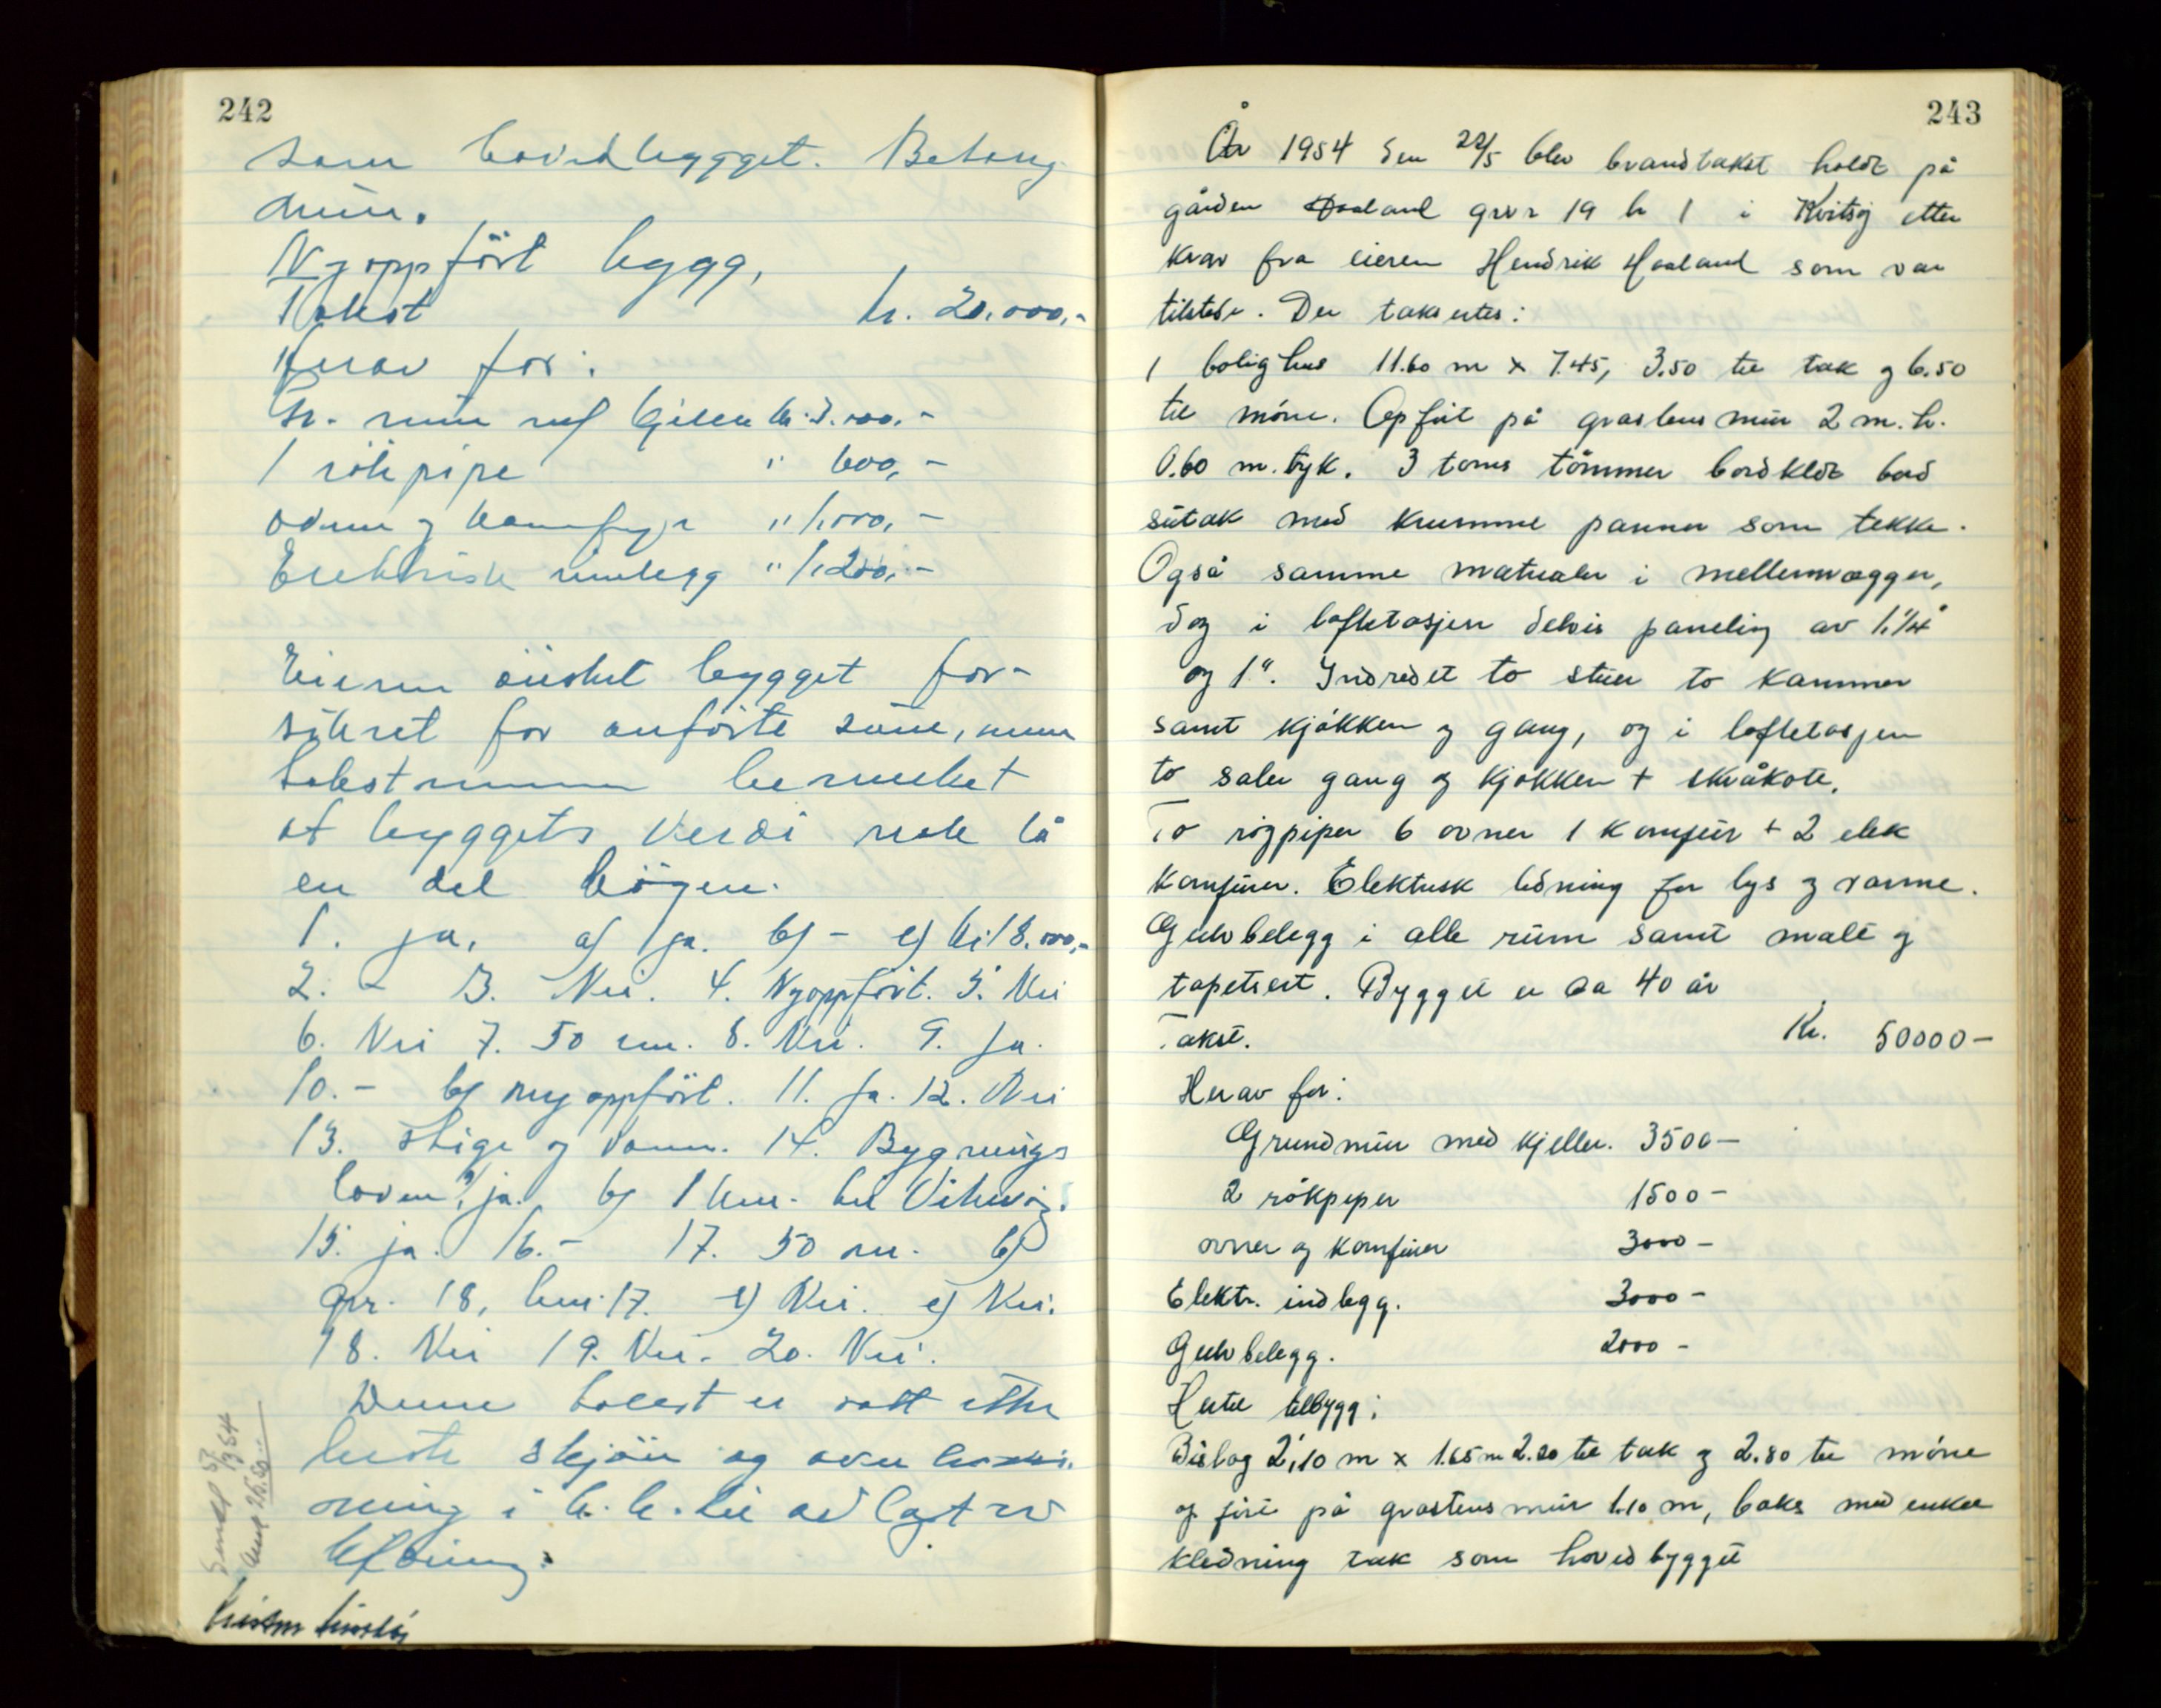 242
som hovedbygget. Betong
mur.
Nyoppfört bygg,
Takst kr. 20.000,-
Herav for:
Gr. mur m/ kjeller kr. 3.000,-
1 rökpipe " 600,-
ovner og komfyr " 1.000,-
Elektrisk innlegg " 1.200,-
Eieren önsket bygget for-
sikret for anförte sum, men
takstmennene bemerket
at byggets verdi nok lå
en del högere.
1. ja. a) ja. b) - c) kr. 18.000,-
2. - 3. Nei. 4. Nyoppfört. 5. Nei
6. Nei 7. 50 m. 8. Nei. 9. Ja.
10. - b) nyoppfört. 11. Ja. 12. Nei
13. Stige og vann. 14. Bygnings
loven, ja. b) 1 km. til
15. ja. 16. - 17. 50 m. b)
gnr. 18, bnr. 17. c) Nei. e) Nei.
18. Nei 19. Nei. 20. Nei.
Denne takst er satt etter
beste skjön og over
i h. h. til avlagt ed
Sendt 5/7 1954
243
År 1954 den 22/5 blev brandtakst holdt på
gården Haaland grnr 19 b 1 i Kvitsöy etter
krav fra eieren Hendrik Haaland som var
tilstede. Der takseertes:
1 bolighus 11.60 m x 7.45, 3.50 til tak og 6.50
til möne. Opfört på graastens mur 2 m. h.
0.60 m. tyk. 3 toms tömmer bordkledt bord
sutak med krumme panner som tekke.
Også samme matrialer i mellemvægger,
dog i loftetasjen delvis paneling av 1.1/4"
og 1". Indredet to stuer to kammer
samt kjökken og gang, og i loftetasjen
to saler gang og kjökken + skråkott.
To rögpiper 6 ovner 1 komfür + 2 elek
komfürer. Elektrisk ledning for lys og varme.
Gulvbelegg i alle rüm samt malt og
tapetsert. Bygget er ca 40 år
Takst. Kr. 50000-
Herav for:
Grundmür med kjeller. 3500-
2 rökpiper 1500-
ovner og komfürer 3000-
Elektr. indlegg. 3000-
Gulvbelegg. 2000-
Hertil tilbygg:
Bislag 2,10 m x 1.65 m 2.20 til tak og 2.80 til möne
opfört på graastens mür 1.10 m, boks med enkel
kledning tak som hovedbygget